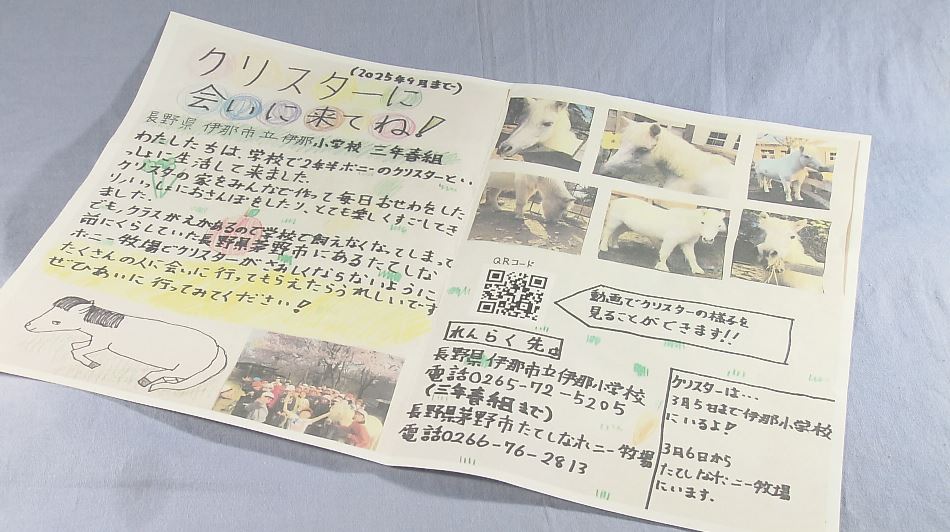 クリスターに
(2025年9月まで)
会いに来てね!
長野県 伊那市立伊那小学校 三年春組
わたしたちは、学校で2年半ポニーのクリスターとい
っしょに生活して来ました。
クリスターの家をみんなで作って毎日おせわをした
り、いっしょにおさんぽをしたり、とても楽しくすごしてき
ました。
でも、クラスがえがあるので学校で飼えなくなってしまって
前にくらしていた長野県茅野市にあるたてしな
ポニー牧場でクリスターがさみしくならないように
たくさんの人に会いに行ってもらえたらうれしいです
ぜひあいに行ってみてください!
QRコード
動画でクリスターの様子を
見ることができます!!
れんらく先
長野県伊那市立伊那小学校
電話0265-72-5205
(三年春組まで)
長野県茅野市たてしなポニー牧場
電話0266-76-2813
クリスターは…
3月5日まで伊那小学校
にいるよ!
3月6日から
たてしなポニー牧場
にいます。